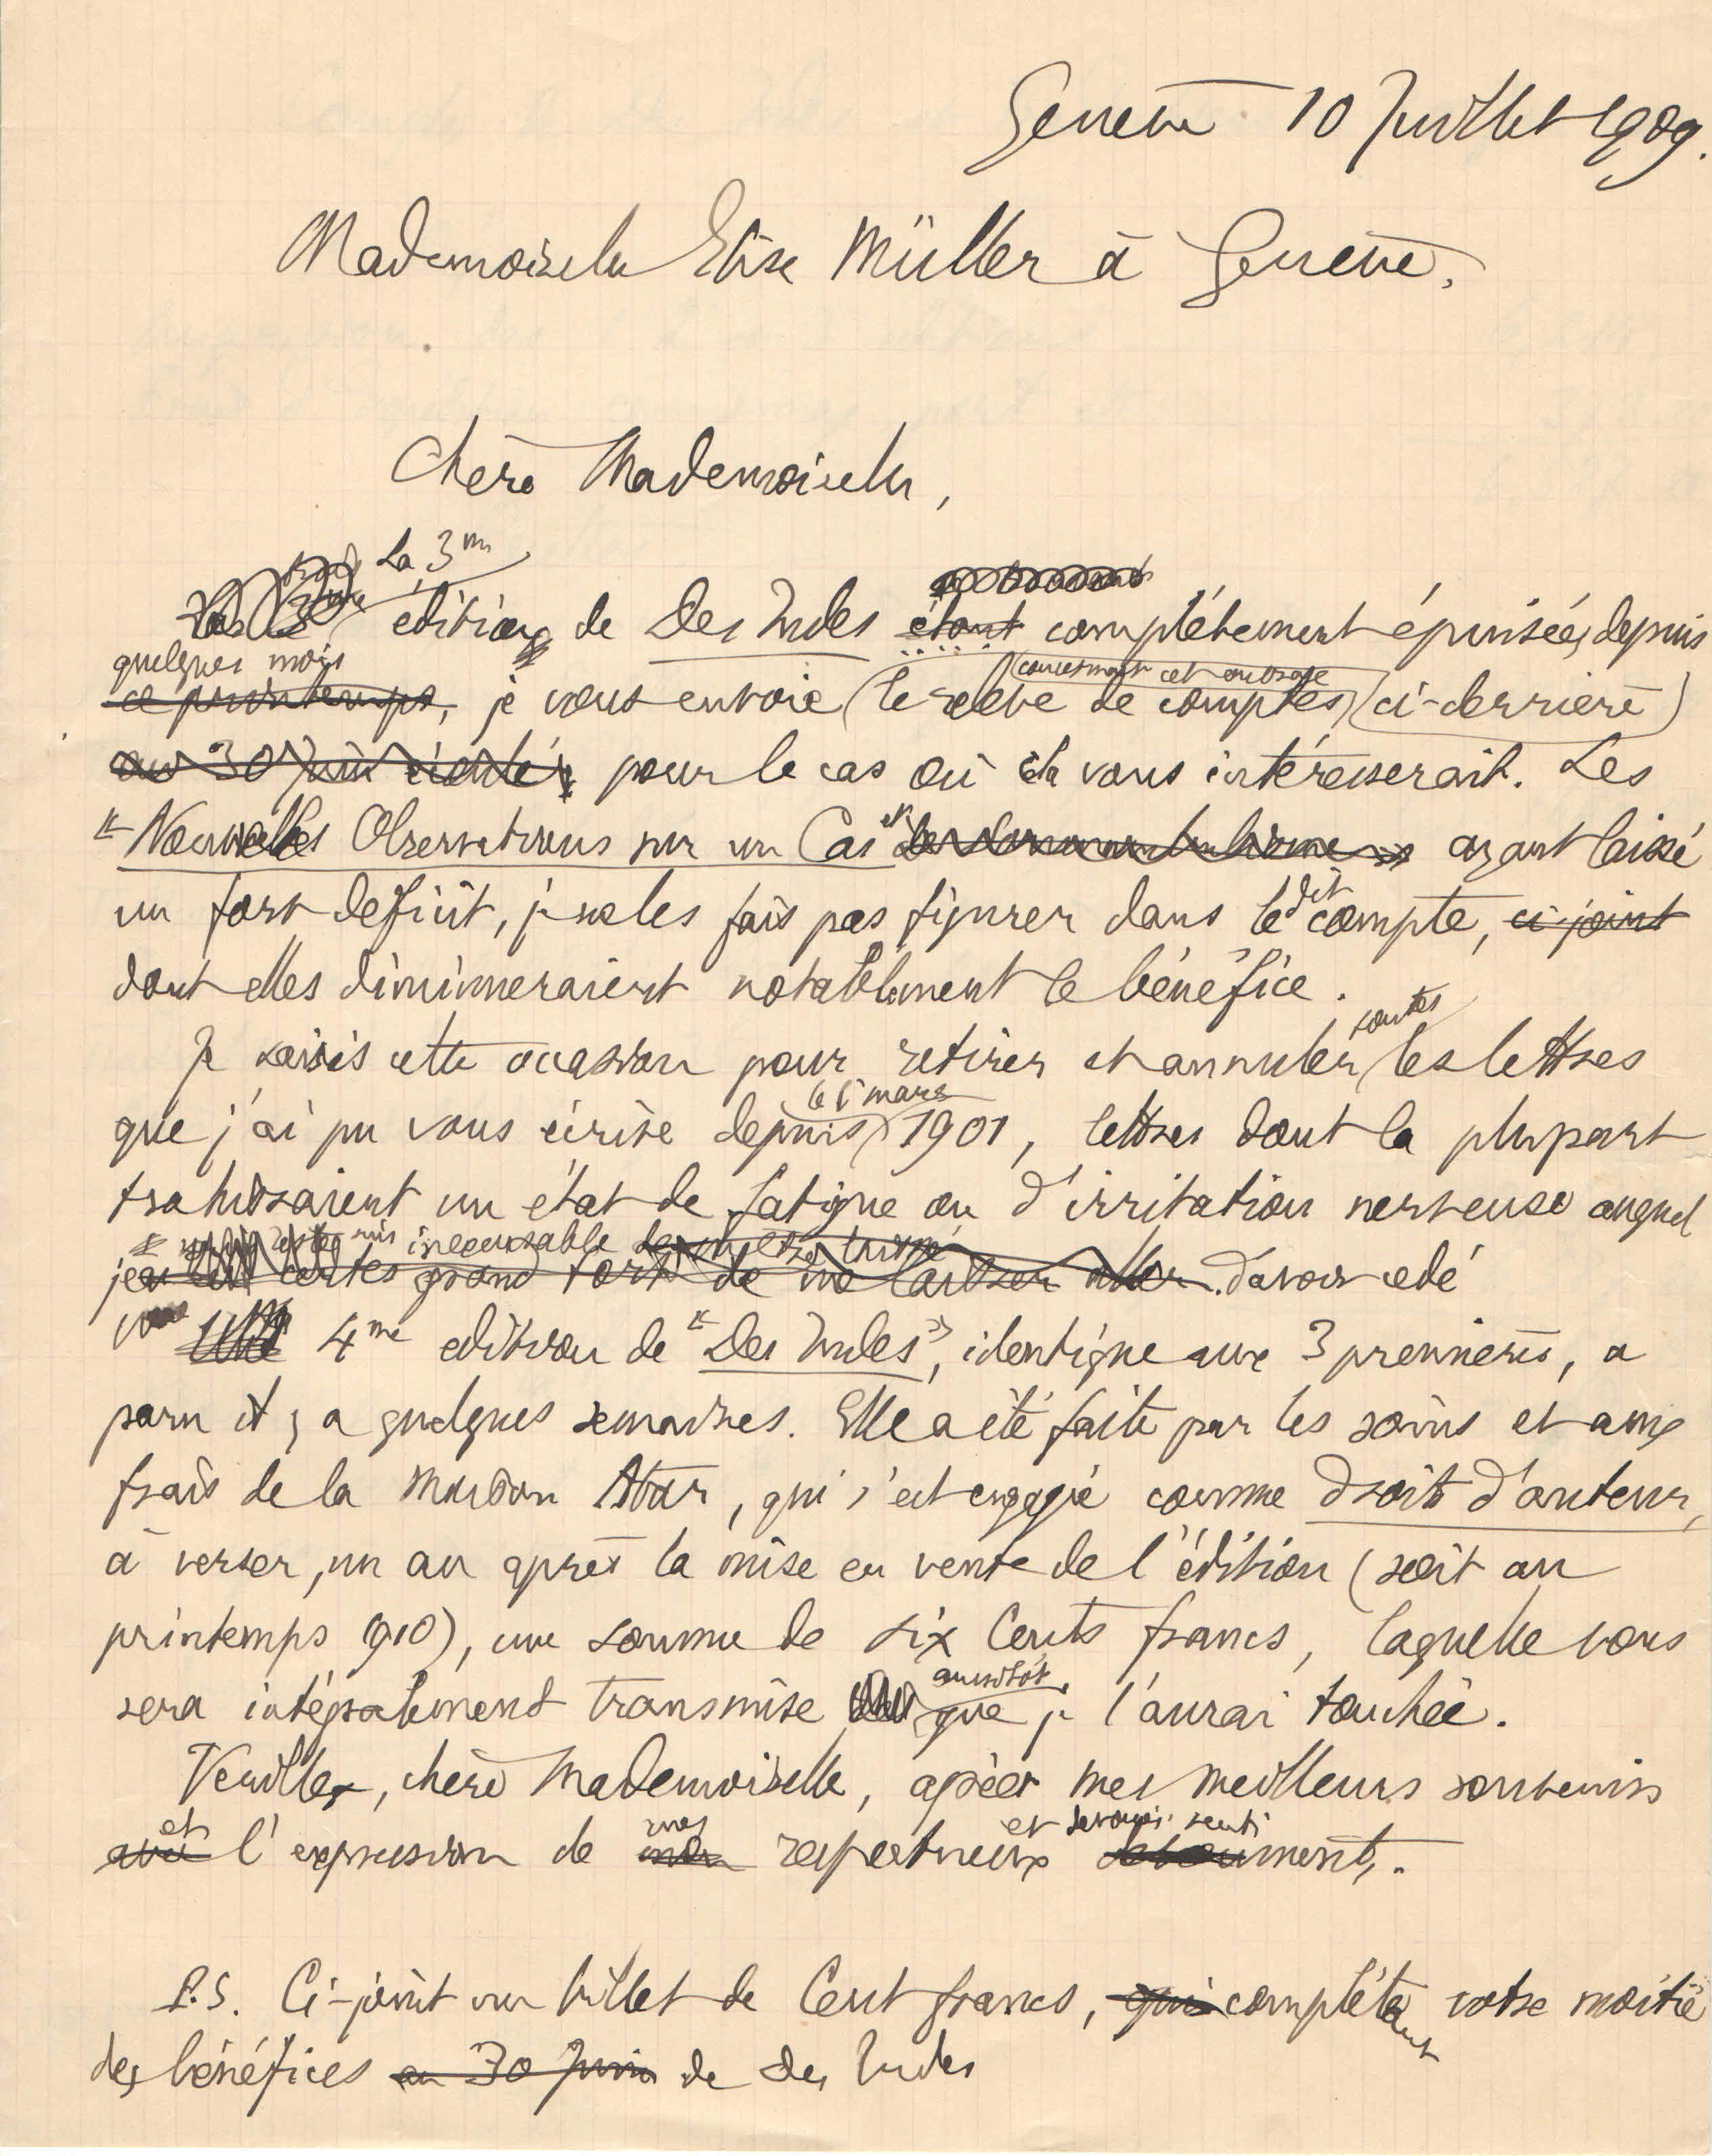 Genève 10 Juillet 1909.
Mademoiselle Elise Müller à Genève.
Chère Mademoiselle,
La 3me
édition de Des Indes étant complètement épuisée, depuis
quelques mois
ce printemps, je vous envoie (le relevé de comptes (ci-derrière)
concernant cet ouvrage
au 30 Juin écoulé, pour le cas où cela vous intéresserait. Les
« Nouvelles Observations sur un Cas » de Somnambulisme » ayant laissé
un fort déficit, je ne les fais pas figurer dans le dit compte, ci-joint
dont elles diminueraient notablement le bénéfice.
Je saisis cette occasion pour retirer et annuler toutes les lettres
que j'ai pu vous écrire depuis le 1er mars 1901, lettres dont la plupart
trahissaient un état de fatigue ou d'irritation nerveuse auquel
je suis inexcusable
certes grand tort de me laisser aller. d'avoir cédé
Une 4me édition de « Des Indes », identique aux 3 premières, a
paru il y a quelques semaines. Elle a été faite par les soins et aux
frais de la Maison Atar, qui s'est engagée comme droits d'auteur,
à verser, un an après la mise en vente de l'édition (soit au
printemps 1910), une somme de six Cents francs, laquelle vous
sera intégralement transmise aussitôt que je l'aurai touchée.
Veuillez, chère Mademoiselle, agréer mes meilleurs souvenirs
et mes et dévoués senti
avec l'expression de mon respectueux dévouements.
P.S. Ci-joint un billet de Cent francs, qui complétant votre moitié
des bénéfices au 30 Juin de Des Indes